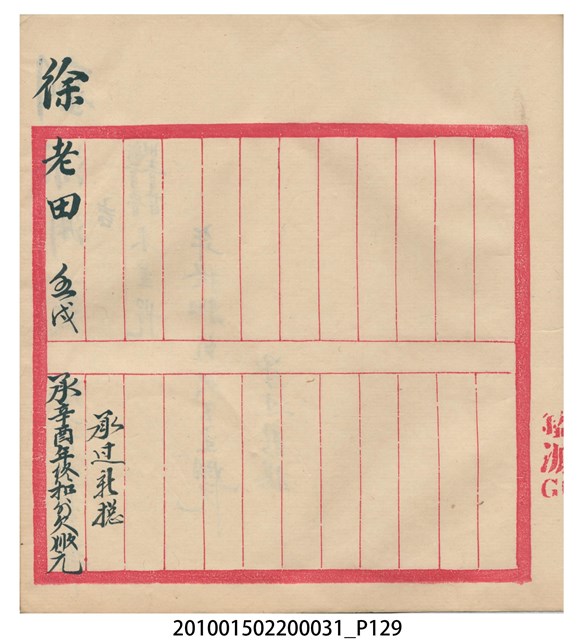 徐老田 壬戌
承辛酉年終和欠元
承过新搃
201001502200031_P129